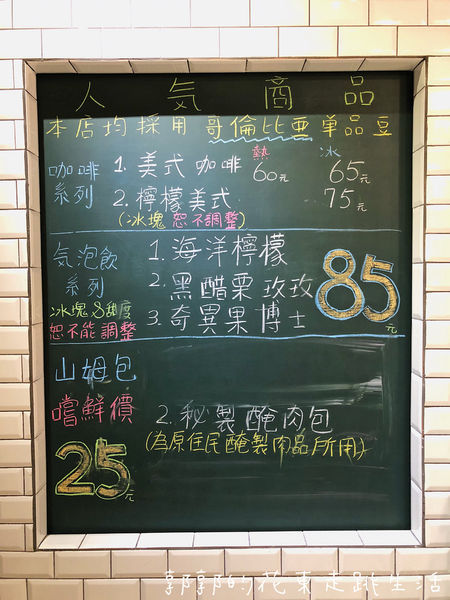 人気商品
本店均採用哥倫比亞單品豆
咖啡系列
熱 冰
1. 美式咖啡 60元 65元
2. 檸檬美式 75元
(冰塊恕不調整)
気泡飲系列
冰塊&甜度
恕不能調整
1. 海洋檸檬
2. 黑醋栗玫玫
3. 奇異果博士
85元
山姆包
嚐鮮價
25元
2. 秘製醃肉包
(為原住民醃製肉品所用)
郭郭的花東走跳生活